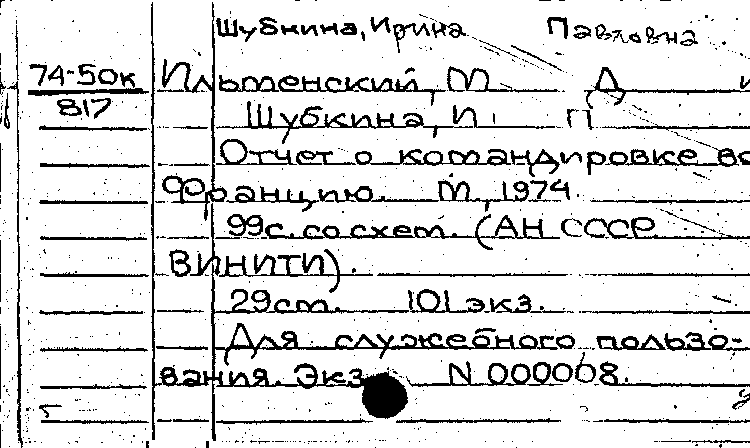 Шубкина, Ирина Павловна
74-50к Ильменский, М Д и
817 Шубкина, И. П
Отчет о командировке во
Францию. М, 1974.
99с. со схем. (АН СССР
ВИНИТИ).
29см. 101 экз.
Для служебного пользо-
вания. Экз N 000008.